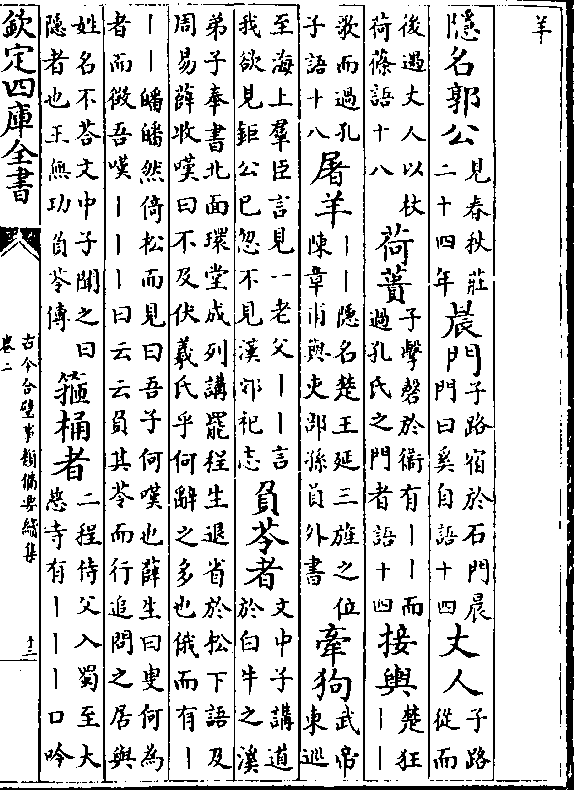 羊
隱名郭公 見春秋莊二十四年 晨門 子路宿於石門晨門曰奚自語十四 丈人 子路從而
後遇丈人以杖荷蓧語十八 荷蕢 子擊磬於衞有丨丨而過孔氏之門者語十四 接輿 楚狂丨丨
歌而過孔子語十八 屠羊 丨丨隱名楚王延三旌之位陳韋甫與吏部孫員外書 牽狗 武帝東巡
至海上羣臣言見一老父丨丨言我欲見鉅公已忽不見漢郊祀志 負苓者 文中子講道於白牛之溪
弟子奉書北面環堂成列講罷程生退省於松下語及周易薛收嘆曰不及伏羲氏乎何辭之多也俄而有丨
丨丨皤皤然倚松而見曰吾子何嘆也薛生曰叟何為者而徵吾嘆丨丨丨曰云云負其苓而行追問之居與
姓名不荅文中子聞之曰隱者也王無功負苓傳 箍桶者 二程侍父入蜀至大慈寺有丨丨丨口吟
欽定四庫全書
古今合璧事類備要續集
卷二
十三